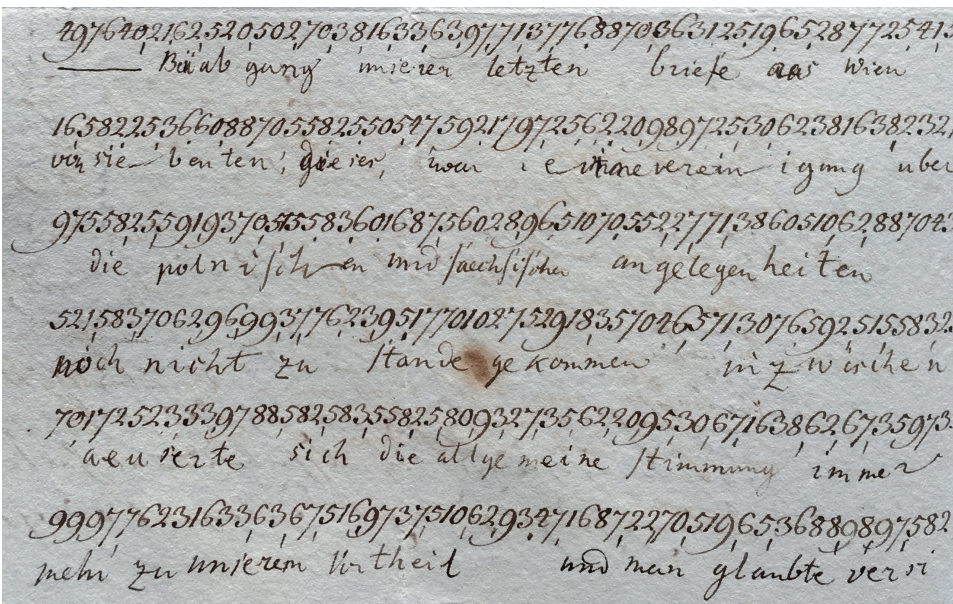 497640216252050270381633639771377688703631251965287725413
Bei ab gang unserer letzten briefe aas Wien
1658225366088705582550547592179725622098972530623816382321
vin sie benten, dieser, war i e inne verein igung uber
975582559193705155836016875602896510705522771386051062887043
die polnischen und saechsischen angelegenheiten
5215837062969937762395177010275291835704657130765925155832
noch nicht zu stande gekommen in z wischen
70172523339788582583558258093273562209530671638626735973
aeuserte sich die allge meine stimmung immer
99977623163363675169737510629347168722705196536889897582
mehr zu unserem Urtheil und man glaubte versi